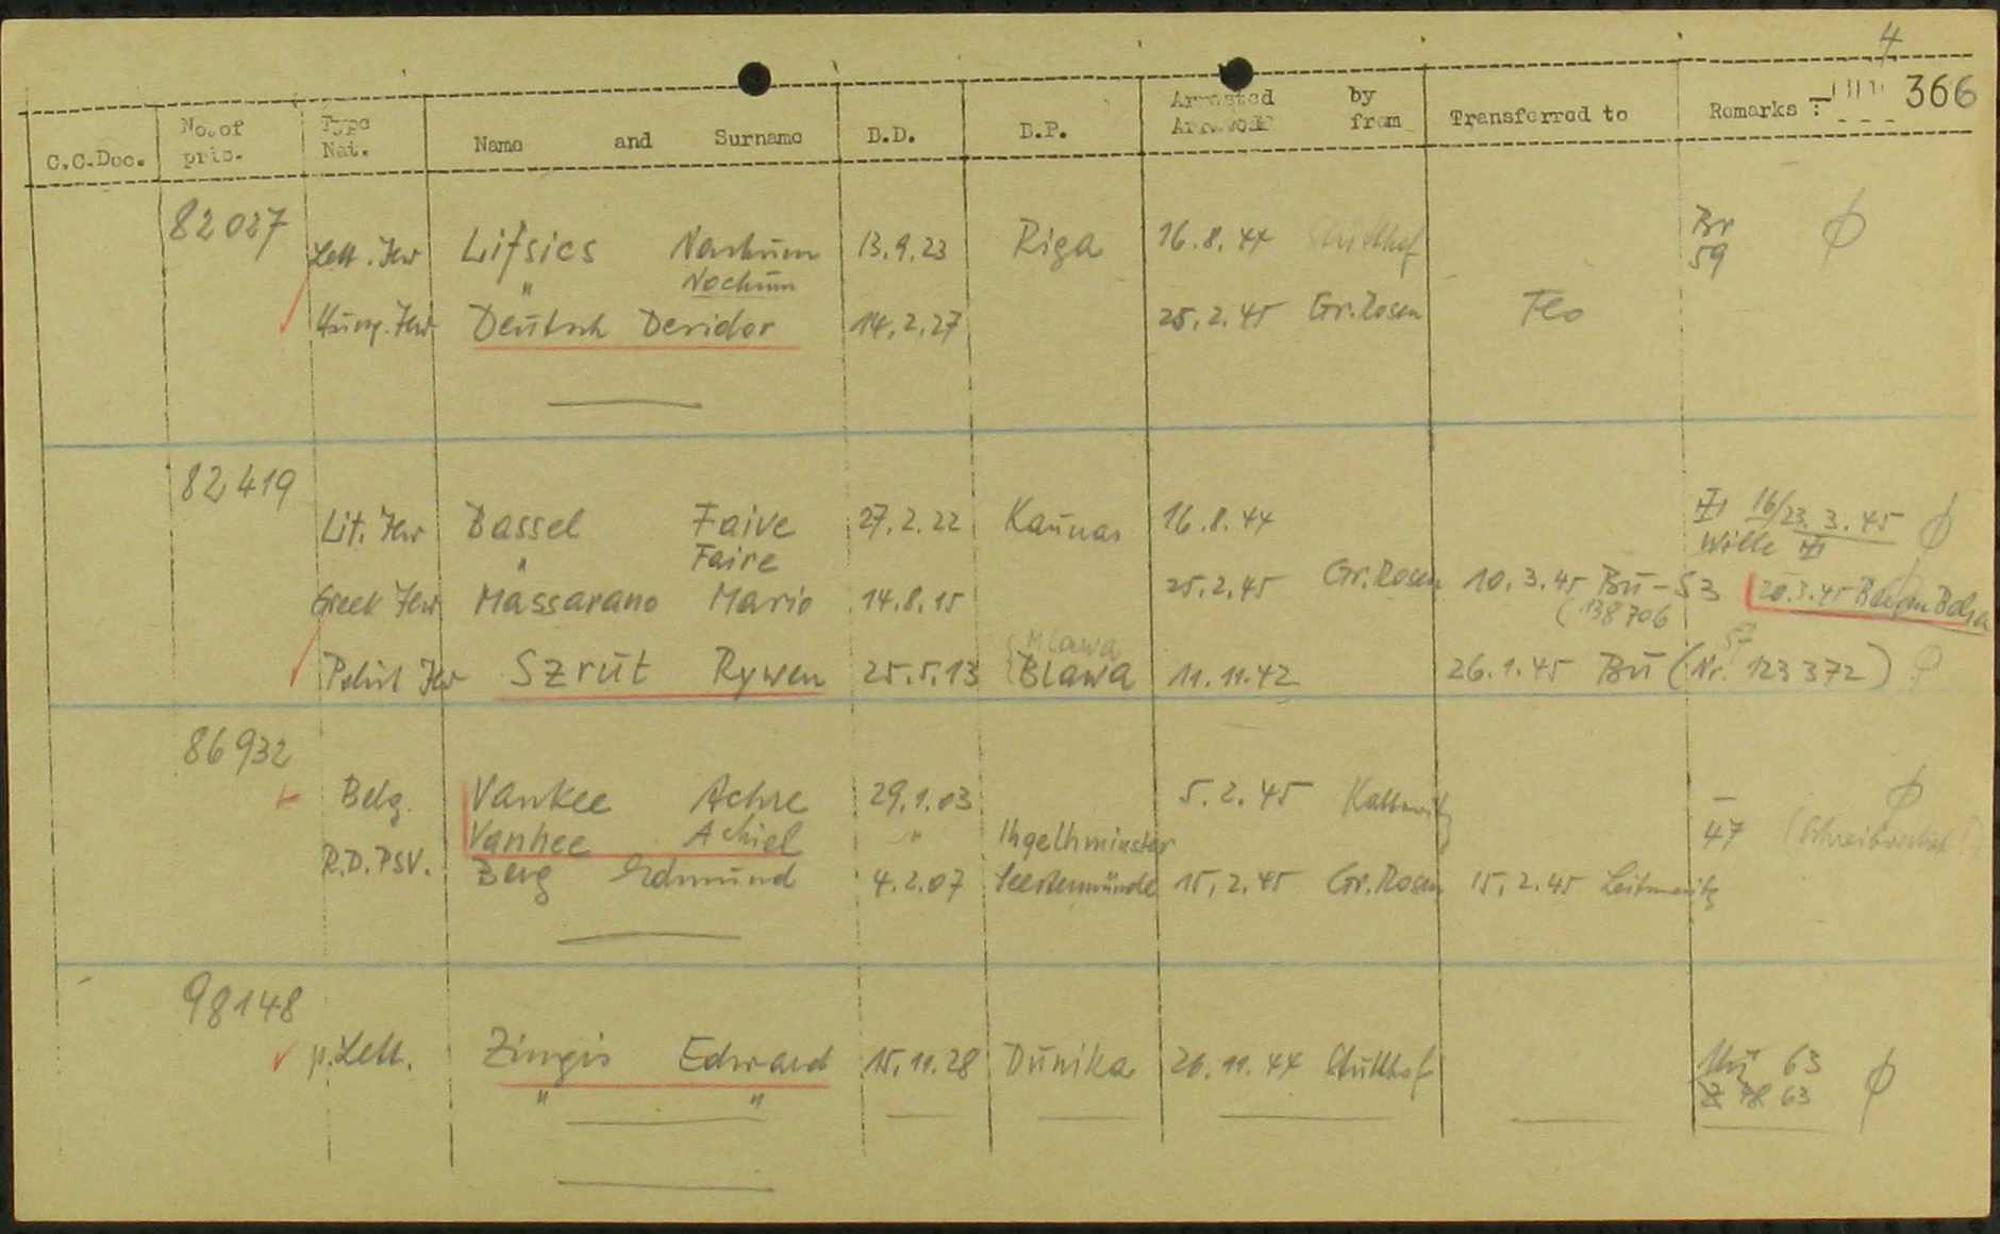 4
C.C.Doc. No. of pris. Type Nat. Name and Surname B.D. B.P. Arrested by from Transferred to Remarks : 366
82027
Lett. Jew Lifsics Nachum 13.9.23 Riga 16.8.44 Stutthof Br 59 ϕ
" Nochum
Hung. Jew Deutsch Devidor 14.2.27 25.2.45 Gr. Rosen Flo
82419
Lit. Jew Bassel Faive 27.2.22 Kaunas 16.8.44 16/23.3.45 ϕ
" Faire Wille
Greek Jew Massarano Mario 14.8.15 25.2.45 Gr. Rosen 10.3.45 Bu-53 20.3.45
(138706
Mlawa 57
Polish Jew Szrut Rywen 25.5.13 Blawa 11.11.42 26.1.45 Bu (Nr. 123372)
86932
Belg. Vankee Achre 29.1.03 5.2.45 Kattowitz ϕ
Vanhee Achiel " Ingelhminster 47
R.D. PSV. Berg Edmund 4.2.07 15.2.45 Gr. Rosen 15.2.45 Leitmeritz
98148
p. Lett. Zingis Edward 15.11.28 Dunika 26.11.44 Stutthof 63 ϕ
" " 63